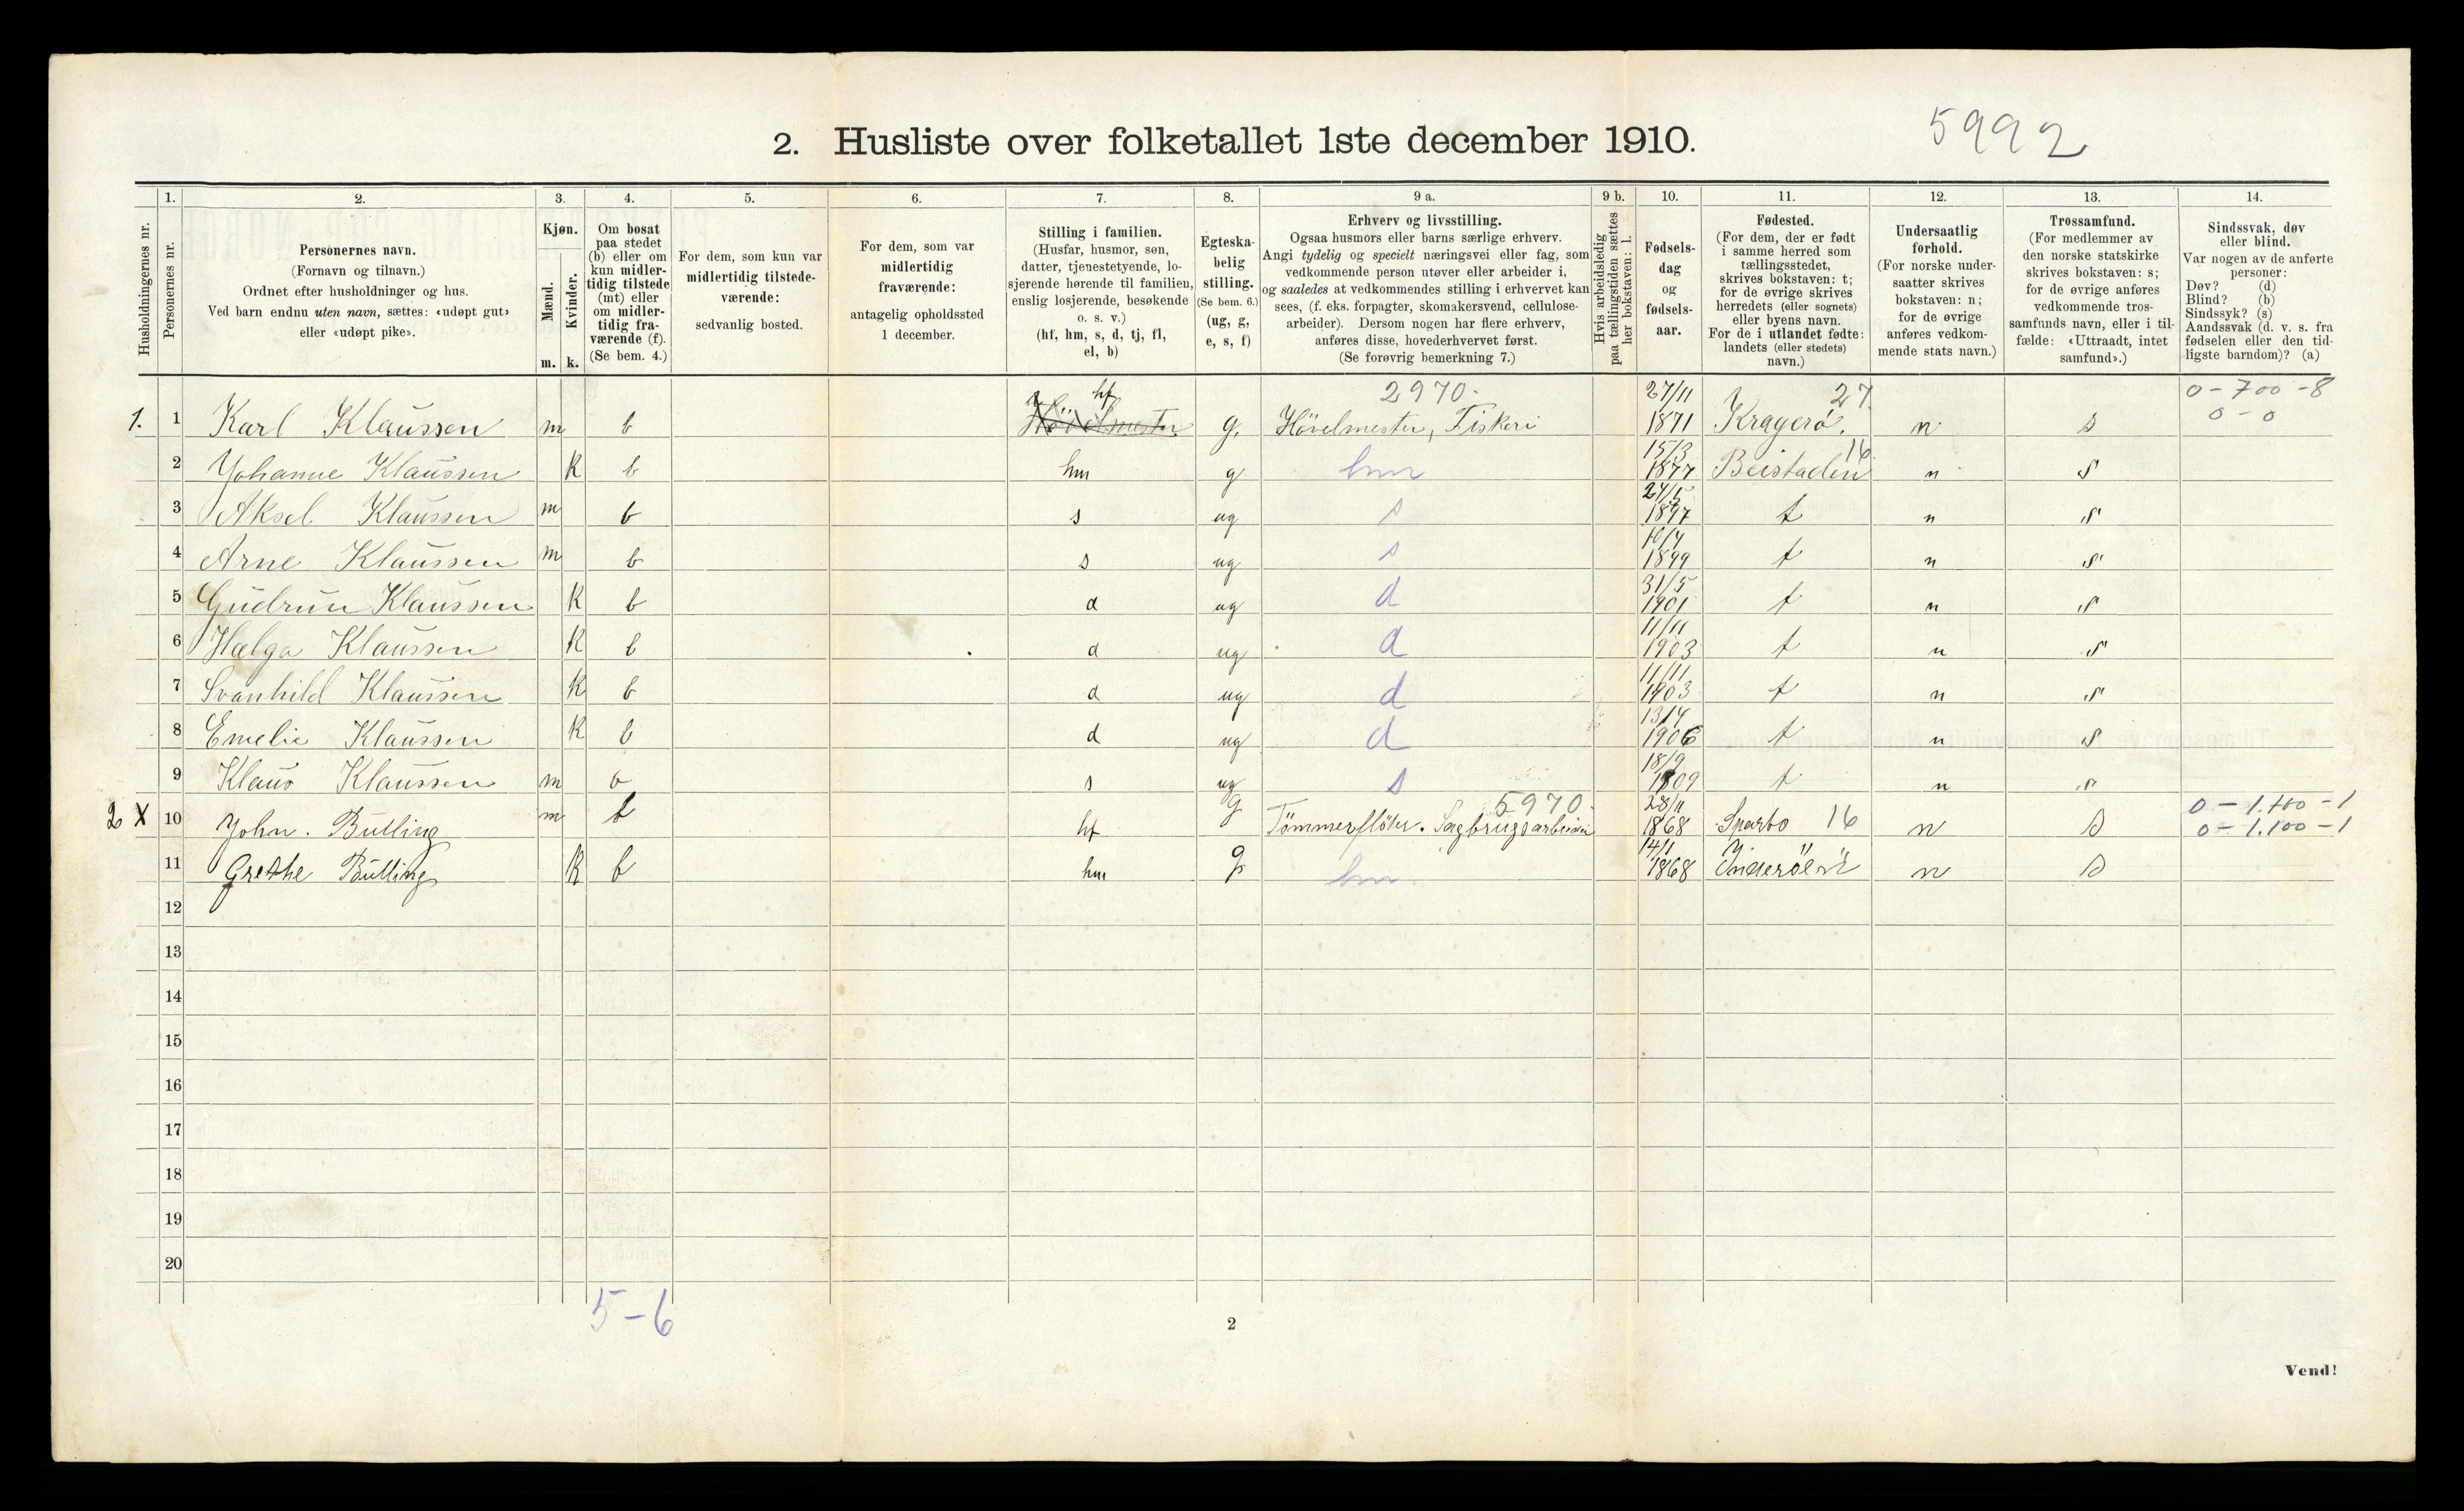 5992
2. Husliste over folketallet 1ste december 1910.
Husholdningernes nr.
1. Personernes nr.
2. Personernes navn. (Fornavn og tilnavn.) Ordnet efter husholdninger og hus. Ved barn endnu uten navn, sættes: «udøpt gut» eller «udøpt pike».
3. Kjøn. Mænd. m. Kvinder. k.
4. Om bosat paa stedet (b) eller om kun midlertidig tilstede (mt) eller om midlertidig fraværende (f). (Se bem. 4.)
5. For dem, som kun var midlertidig tilstedeværende: sedvanlig bosted.
6. For dem, som var midlertidig fraværende: antagelig opholdssted 1 december.
7. Stilling i familien. (Husfar, husmor, søn, datter, tjenestetyende, losjerende hørende til familien, enslig losjerende, besøkende o. s. v.) (hf, hm, s, d, tj, fl, el, b)
8. Egteskabelig stilling. (Se bem. 6.) (ug, g, e, s, f)
9 a. Erhverv og livsstilling. Ogsaa husmors eller barns særlige erhverv. Angi tydelig og specielt næringsvei eller fag, som vedkommende person utøver eller arbeider i, og saaledes at vedkommendes stilling i erhvervet kan sees, (f. eks. forpagter, skomakersvend, cellulosearbeider). Dersom nogen har flere erhverv, anføres disse, hovederhvervet først. (Se forøvrig bemerkning 7.)
9 b. Hvis arbeidsledig paa tællingstiden sættes her bokstaven: l.
10. Fødselsdag og fødselsaar.
11. Fødested. (For dem, der er født i samme herred som tællingsstedet, skrives bokstaven: t; for de øvrige skrives herredets (eller sognets) eller byens navn. For de i utlandet fødte: landets (eller stedets) navn.)
12. Undersaatlig forhold. (For norske undersaatter skrives bokstaven: n; for de øvrige anføres vedkommende stats navn.)
13. Trossamfund. (For medlemmer av den norske statskirke skrives bokstaven: s; for de øvrige anføres vedkommende trossamfunds navn, eller i tilfælde: «Uttraadt, intet samfund».)
14. Sindssvak, døv eller blind. Var nogen av de anførte personer: Døv? (d) Blind? (b) Sindssyk? (s) Aandssvak (d. v. s. fra fødselen eller den tidligste barndom)? (a)
1. 1 Karl Klaussen m b Hövelmester hf g. 2970. Hövelmester, Fiskeri 27/11 1871 Kragerø. 27 n s 0-700-8 0-0
2 Johanne Klaussen K b hm g hm 15/3 1877 Beistaden 16 n s
3 Aksel Klaussen m b s ug s 24/5 1897 t n s
4 Arne Klaussen m b s ug s 1899 t n s
5 Gudrun Klaussen K b d ug d 31/5 1901 t n s
6 Hælga Klaussen K b d ug d 11/11 1903 t n s
7 Svanhild Klaussen K b d ug d 11/11 1903 t n s
8 Emelie Klaussen K b d ug d 13/4 1906 t n s
9 Klaus Klaussen m b s ug s 18/9 1909 t n s
2 X 10 John. Bulling m b hf g 5970. Tömmerflöter. Sagbrugsarbeider 28/11 1868 Sparbo 16 n s 0-1.100-1 0-1.100-1
11 Grethe Bulling K b hm g hm. 14/1 1868 Inderöen " n s
12
13
14
15
16
17
18
19
20
5-6
2
Vend!